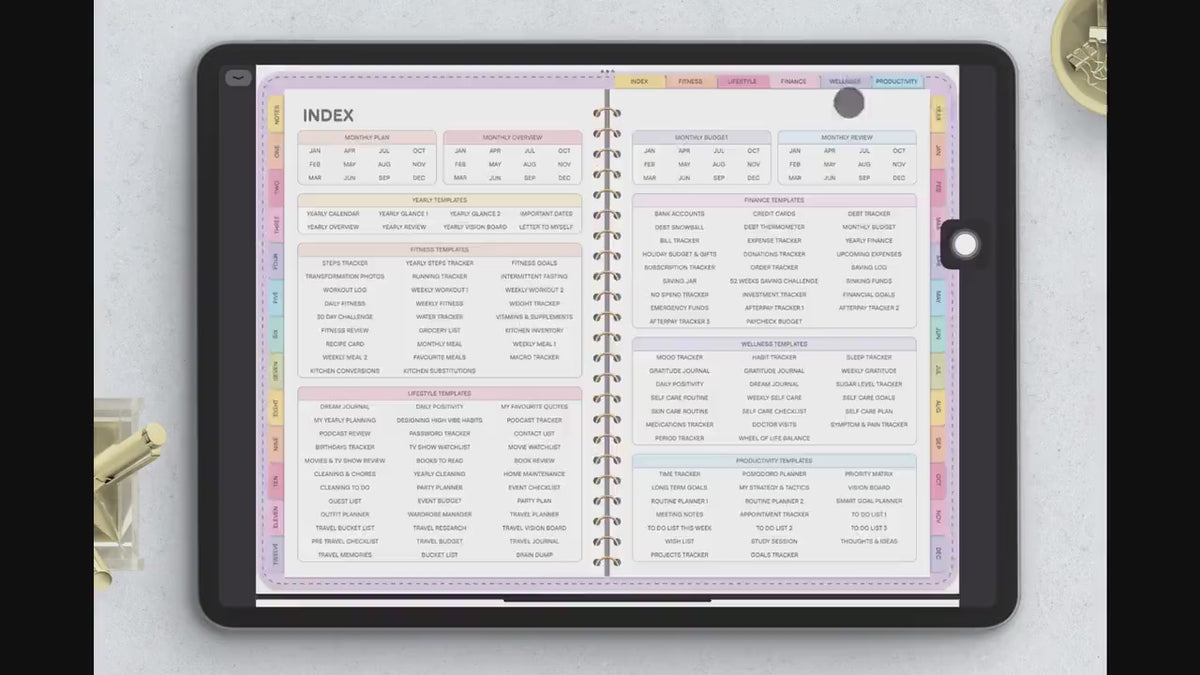 INDEX FITNESS LIFESTYLE FINANCE WELLNESS PRODUCTIVITY
INDEX
MONTHLY PLAN
JAN APR JUL OCT
FEB MAY AUG NOV
MAR JUN SEP DEC
MONTHLY OVERVIEW
JAN APR JUL OCT
FEB MAY AUG NOV
MAR JUN SEP DEC
YEARLY TEMPLATES
YEARLY CALENDAR YEARLY GLANCE 1 YEARLY GLANCE 2 IMPORTANT DATES
YEARLY OVERVIEW YEARLY REVIEW YEARLY VISION BOARD LETTER TO MYSELF
FITNESS TEMPLATES
STEPS TRACKER YEARLY STEPS TRACKER FITNESS GOALS
TRANSFORMATION PHOTOS RUNNING TRACKER INTERMITTENT FASTING
WORKOUT LOG WEEKLY WORKOUT 1 WEEKLY WORKOUT 2
DAILY FITNESS WEEKLY FITNESS WEIGHT TRACKER
30 DAY CHALLENGE WATER TRACKER VITAMINS & SUPPLEMENTS
FITNESS REVIEW GROCERY LIST KITCHEN INVENTORY
RECIPE CARD MONTHLY MEAL WEEKLY MEAL 1
WEEKLY MEAL 2 FAVOURITE MEALS MACRO TRACKER
KITCHEN CONVERSIONS KITCHEN SUBSTITUTIONS
LIFESTYLE TEMPLATES
DREAM JOURNAL DAILY POSITIVITY MY FAVOURITE QUOTES
MY YEARLY PLANNING DESIGNING HIGH VIBE HABITS PODCAST TRACKER
PODCAST REVIEW PASSWORD TRACKER CONTACT LIST
BIRTHDAYS TRACKER TV SHOW WATCHLIST MOVIE WATCHLIST
MOVIES & TV SHOW REVIEW BOOKS TO READ BOOK REVIEW
CLEANING & CHORES YEARLY CLEANING HOME MAINTENANCE
CLEANING TO DO PARTY PLANNER EVENT CHECKLIST
GUEST LIST EVENT BUDGET PARTY PLAN
OUTFIT PLANNER WARDROBE MANAGER TRAVEL PLANNER
TRAVEL BUCKET LIST TRAVEL RESEARCH TRAVEL VISION BOARD
PRE TRAVEL CHECKLIST TRAVEL BUDGET TRAVEL JOURNAL
TRAVEL MEMORIES BUCKET LIST BRAIN DUMP
MONTHLY BUDGET
JAN APR JUL OCT
FEB MAY AUG NOV
MAR JUN SEP DEC
MONTHLY REVIEW
JAN APR JUL OCT
FEB MAY AUG NOV
MAR JUN SEP DEC
FINANCE TEMPLATES
BANK ACCOUNTS CREDIT CARDS DEBT TRACKER
DEBT SNOWBALL DEBT THERMOMETER MONTHLY BUDGET
BILL TRACKER EXPENSE TRACKER YEARLY FINANCE
HOLIDAY BUDGET & GIFTS DONATIONS TRACKER UPCOMING EXPENSES
SUBSCRIPTION TRACKER ORDER TRACKER SAVING LOG
SAVING JAR 52 WEEKS SAVING CHALLENGE SINKING FUNDS
NO SPEND TRACKER INVESTMENT TRACKER FINANCIAL GOALS
EMERGENCY FUNDS AFTERPAY TRACKER 1 AFTERPAY TRACKER 2
AFTERPAY TRACKER 3 PAYCHECK BUDGET
WELLNESS TEMPLATES
MOOD TRACKER HABIT TRACKER SLEEP TRACKER
GRATITUDE JOURNAL GRATITUDE JOURNAL WEEKLY GRATITUDE
DAILY POSITIVITY DREAM JOURNAL SUGAR LEVEL TRACKER
SELF CARE ROUTINE WEEKLY SELF CARE SELF CARE GOALS
SKIN CARE ROUTINE SELF CARE CHECKLIST SELF CARE PLAN
MEDICATIONS TRACKER DOCTOR VISITS SYMPTOM & PAIN TRACKER
PERIOD TRACKER WHEEL OF LIFE BALANCE
PRODUCTIVITY TEMPLATES
TIME TRACKER POMODORO PLANNER PRIORITY MATRIX
LONG TERM GOALS MY STRATEGY & TACTICS VISION BOARD
ROUTINE PLANNER 1 ROUTINE PLANNER 2 SMART GOAL PLANNER
MEETING NOTES APPOINTMENT TRACKER TO DO LIST 1
TO DO LIST THIS WEEK TO DO LIST 2 TO DO LIST 3
WISH LIST STUDY SESSION THOUGHTS & IDEAS
PROJECTS TRACKER GOALS TRACKER
NOTES
ONE
TWO
THREE
FOUR
FIVE
SIX
SEVEN
EIGHT
NINE
TEN
ELEVEN
TWELVE
YEAR
JAN
FEB
MAY
JUN
JUL
AUG
SEP
OCT
NOV
DEC